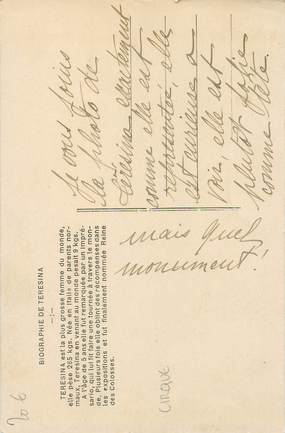 Je vous joins
la photo de
Teresina exactement
comme elle est
représentée, elle
est curieuse a
voir, elle est
plutôt forte
comme tête
mais quel
monument!
BIOGRAPHIE DE TERESINA
TERESINA est la plus grosse femme du monde,
elle pèse 285 kgs. Née en Italie de parents nor-
maux, Teresina en venant au monde pesait 9 kgs.
A l'âge de 5 ans elle fut remarquée par un impré-
sario, qui lui fit faire une tournée à travers le mon-
de. Plusieurs fois elle obtint des récompenses dans
les expositions et fut finalement nommée Reine
des Colosses.
CIRQUE